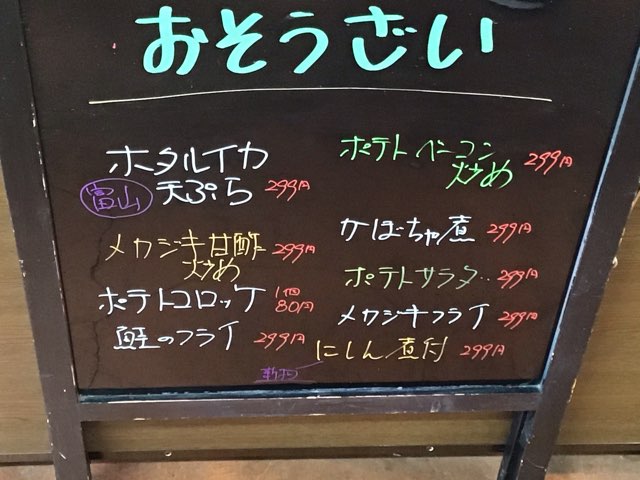 おそうざい
ホタルイカ
富山 天ぷら 299円
メカジキ甘酢 299円
炒め
ポテトコロッケ 1個 80円
鮭のフライ 299円
ポテトベーコン 299円
炒め
かぼちゃ煮 299円
ポテトサラダ 299円
メカジキフライ 299円
にしん煮付 299円